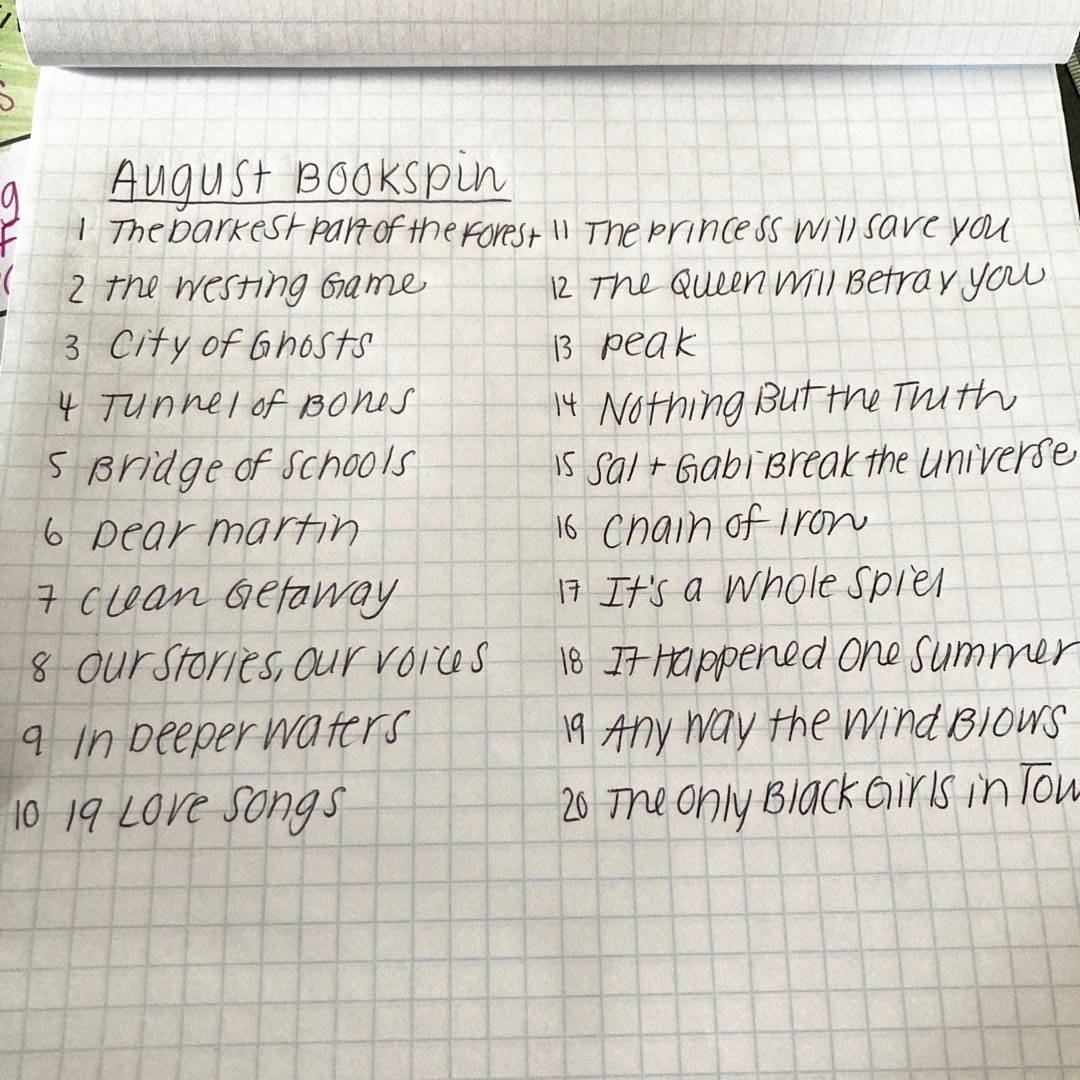 August Bookspin
1 The Darkest Part of the Forest
2 The Westing Game
3 City of Ghosts
4 Tunnel of Bones
5 Bridge of Schools
6 Dear Martin
7 Clean Getaway
8 Our Stories, Our Voices
9 In Deeper Waters
10 19 Love Songs
11 The Princess Will Save You
12 The Queen Will Betray You
13 Peak
14 Nothing But the Truth
15 Sal + Gabi Break the Universe
16 Chain of Iron
17 It's a Whole Spiel
18 It Happened One Summer
19 Any Way the Wind Blows
20 The Only Black Girls in Tow